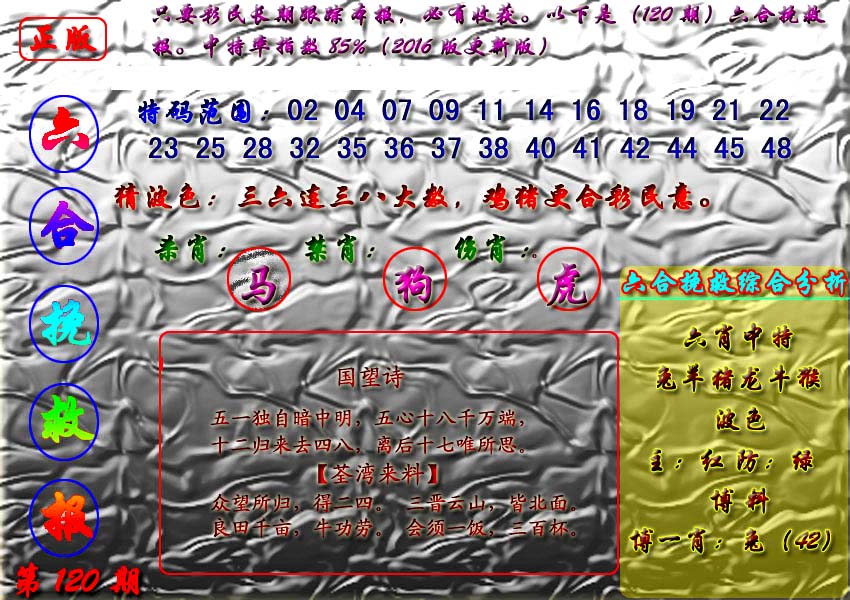 正版
只要彩民长期跟踪本报，必有收获。以下是（120 期）六合挽救
报。中特率指数 85%（2016 版更新版）
六合挽救报
第 120 期
特码范围：02 04 07 09 11 14 16 18 19 21 22
23 25 28 32 35 36 37 38 40 41 42 44 45 48
猜波色：三六连三八大数，鸡猪更合彩民意。
杀肖：马 禁肖：狗 伤肖：虎
国望诗
五一独自暗中明，五心十八千万端，
十二归来去四八，离后十七唯所思。
【荃湾来料】
众望所归，得二四。 三晋云山，皆北面。
良田千亩，牛功劳。 会须一饭，三百杯。
六合挽救综合分析
六肖中特
兔羊猪龙牛猴
波色
主：红防：绿
博料
博一肖：兔（42）